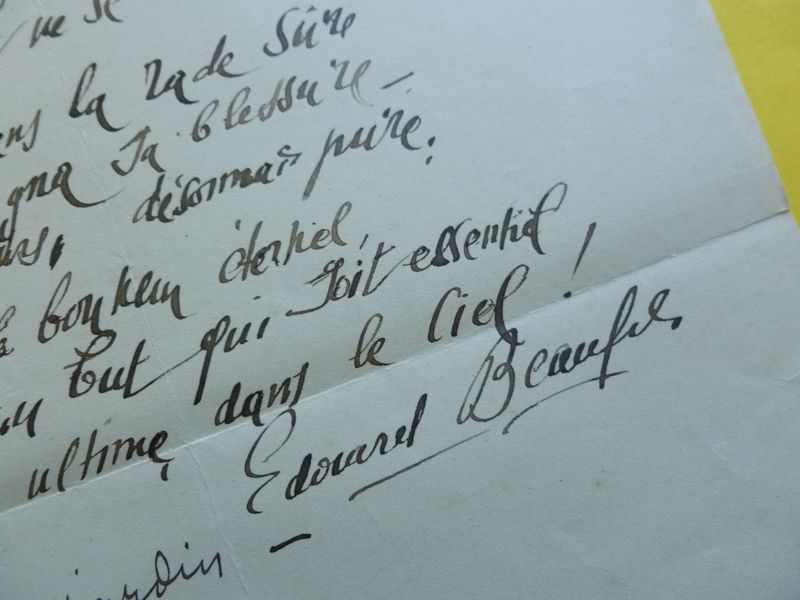 ne se
la rade sûre
sa blessure –
désormais pure.
bonheur éternel,
but qui soit essentiel
ultime, dans le Ciel !
Edouard Beaufils